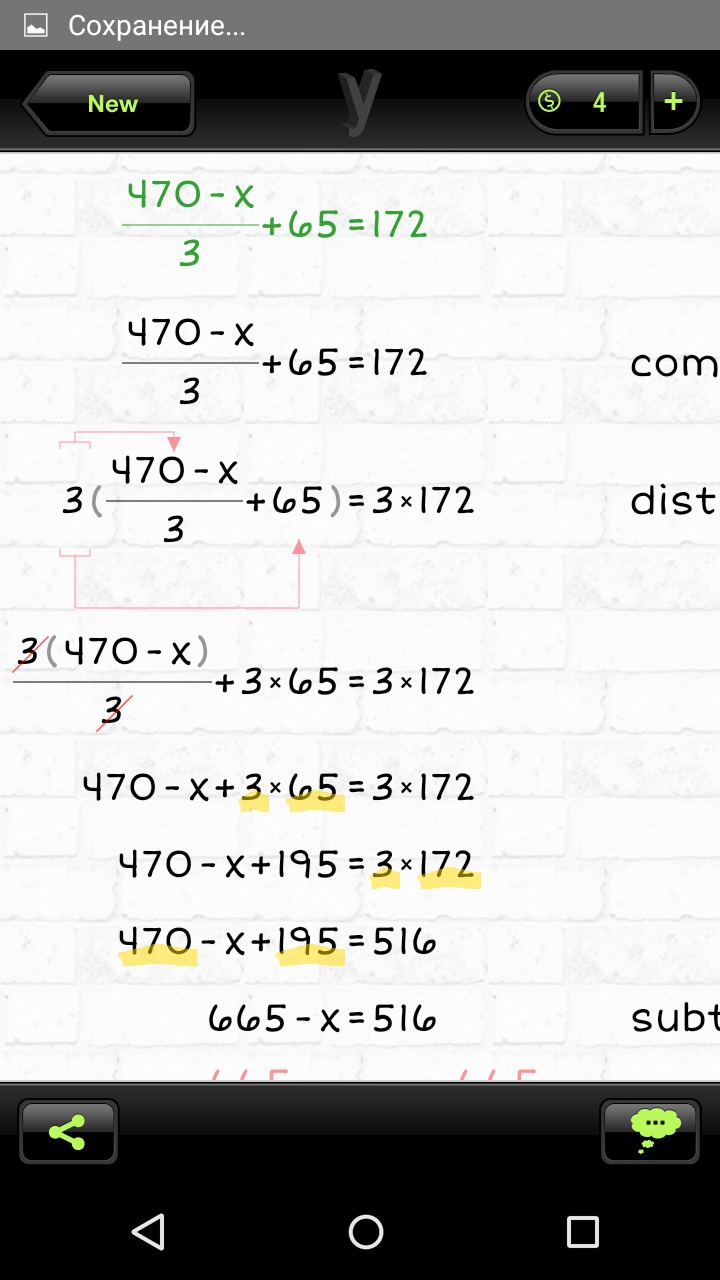 Сохранение...
New
y
4 +
470 - x
3
+ 65 = 172
470 - x
3
+ 65 = 172
com
3 ( 470 - x
3
+ 65 ) = 3 × 172
dist
3 ( 470 - x )
3
+ 3 × 65 = 3 × 172
470 - x + 3 × 65 = 3 × 172
470 - x + 195 = 3 × 172
470 - x + 195 = 516
665 - x = 516
subt